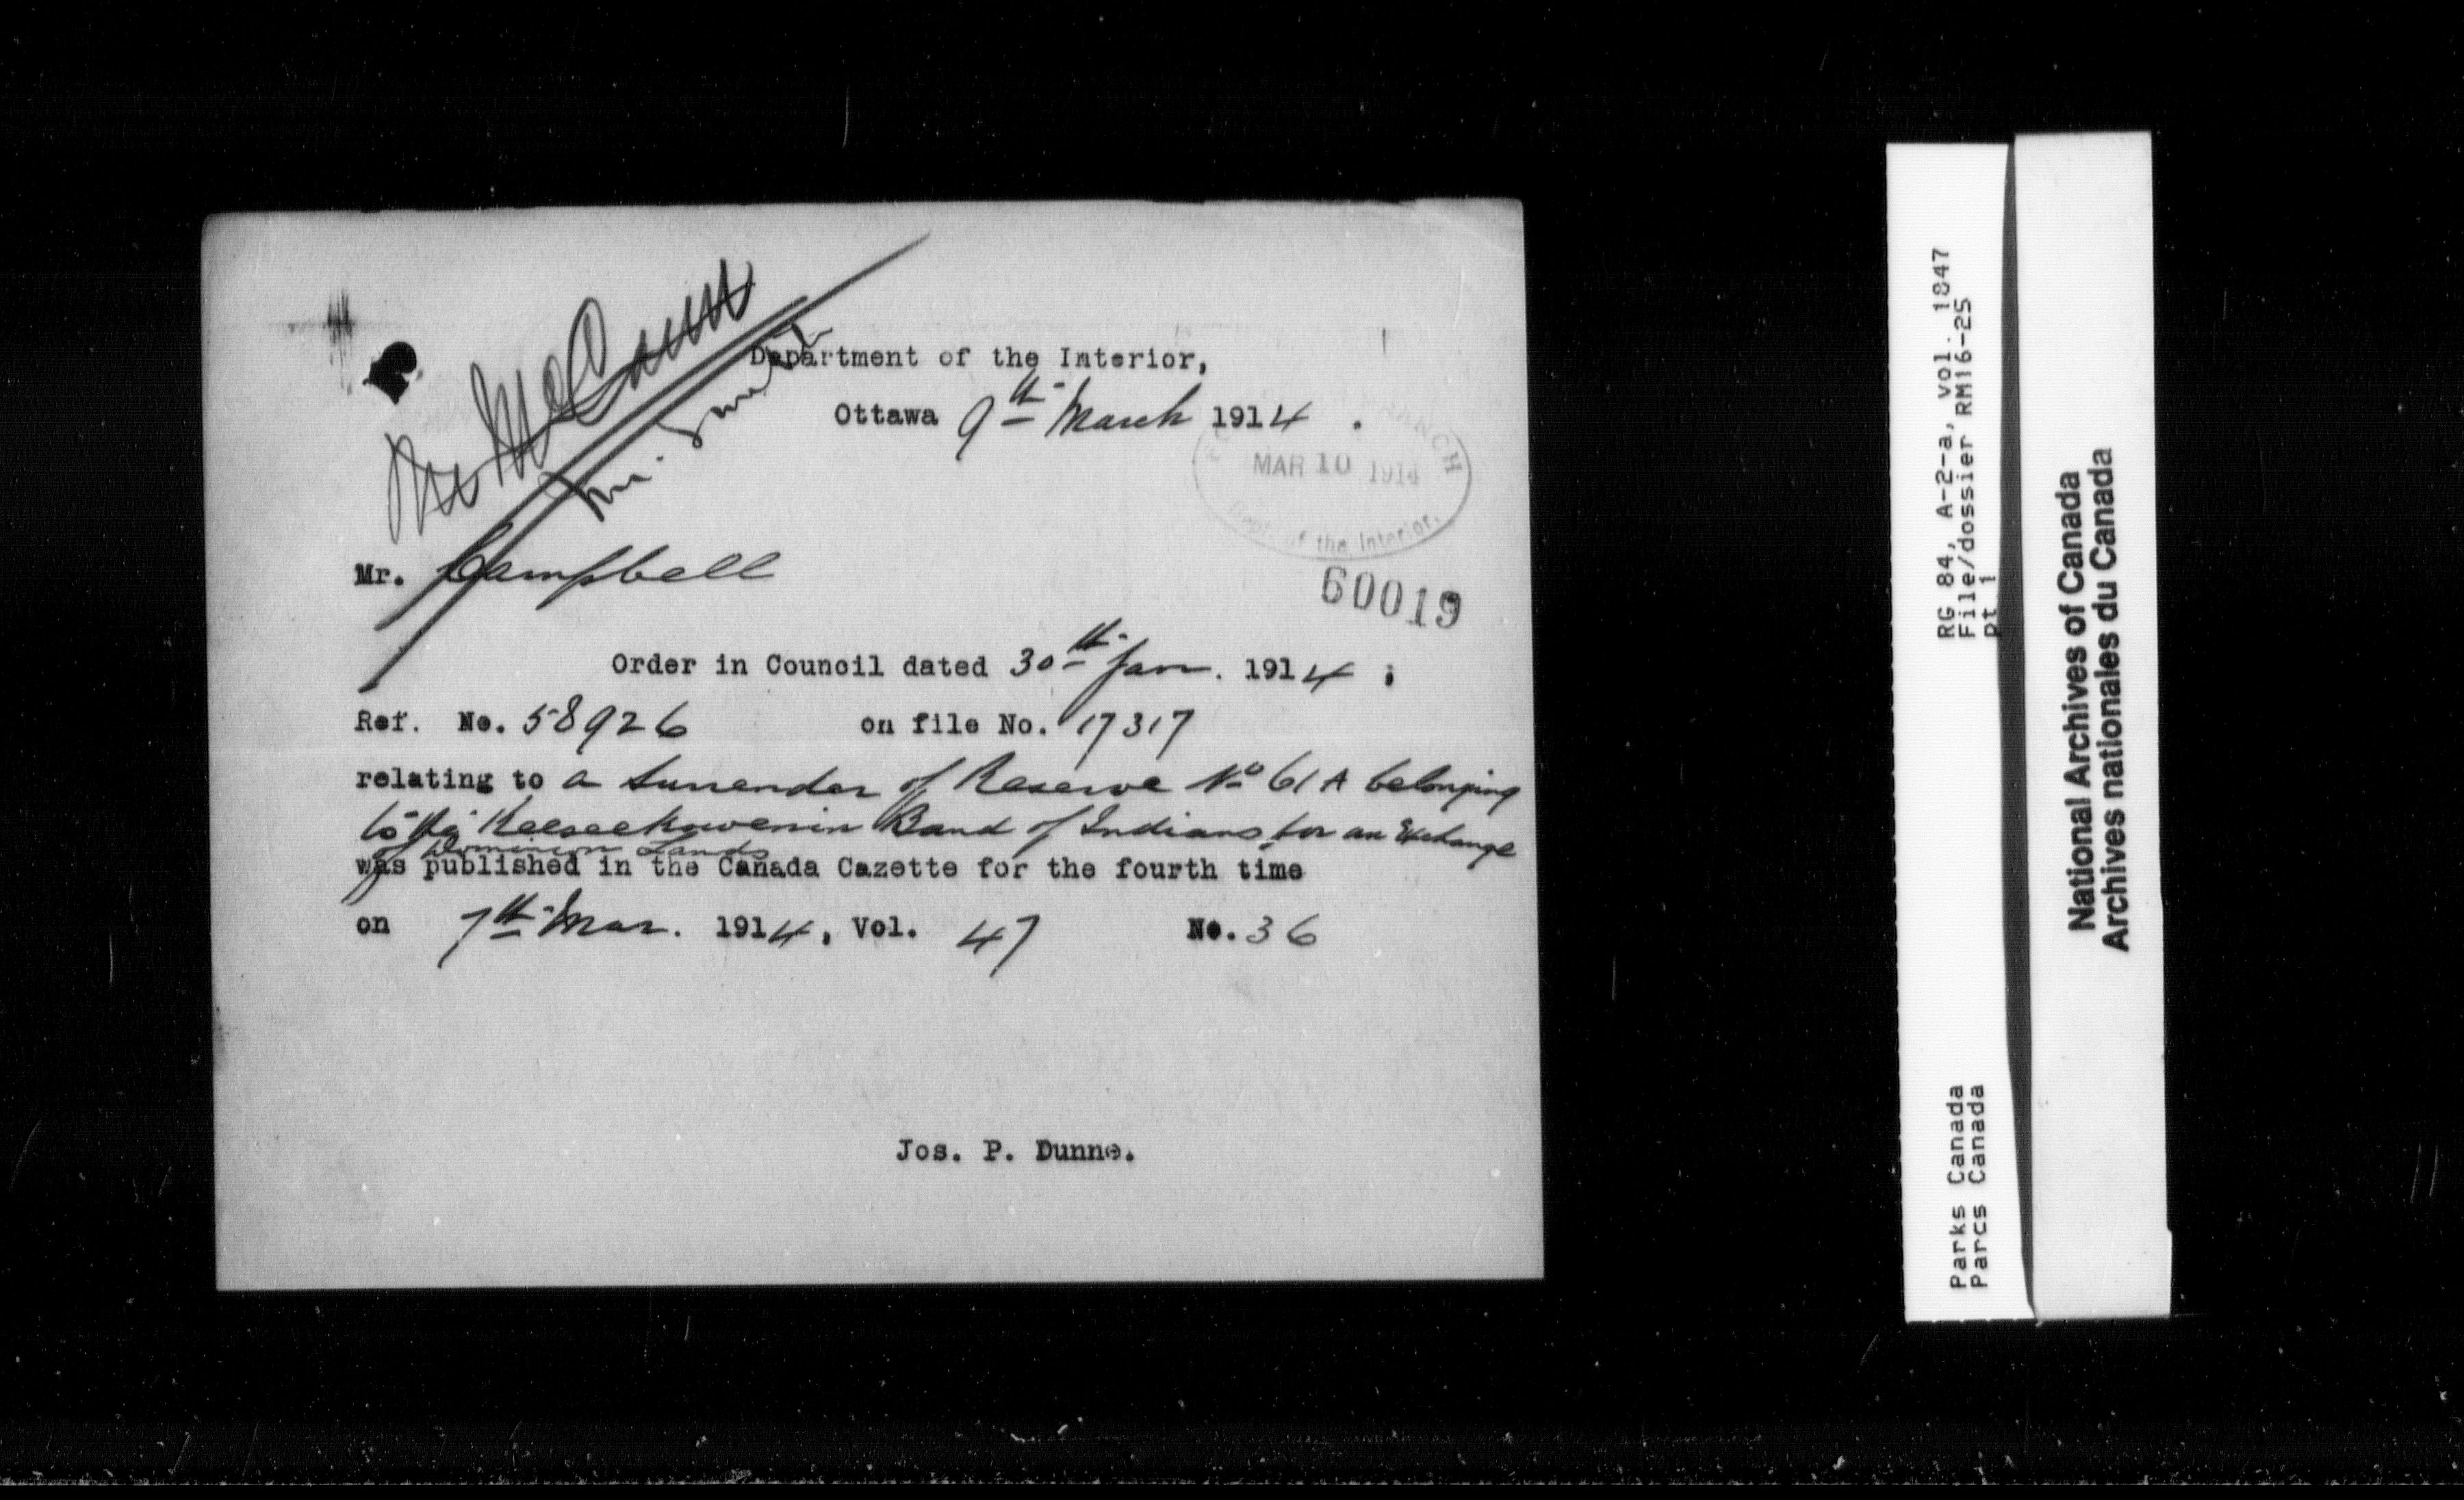 Mr McCann
Mr. Smart
Department of the Interior,
Ottawa 9th March 1914.
MAR 10 1914
Dept. of the Interior.
60019
Mr. Campbell
Order in Council dated 30th Jan. 1914;
Ref. No. 58926 on file No. 17317
relating to a surrender of Reserve No 61A belonging
to the Keeseekowenin Band of Indians for an Exchange
of Dominion Lands
was published in the Canada Cazette for the fourth time
on 7th Mar. 1914, Vol. 47 No. 36
Jos. P. Dunne.
RG 84, A-2-a, vol. 1847
File/dossier RM16-25
pt 1
Parks Canada
Parcs Canada
National Archives of Canada
Archives nationales du Canada